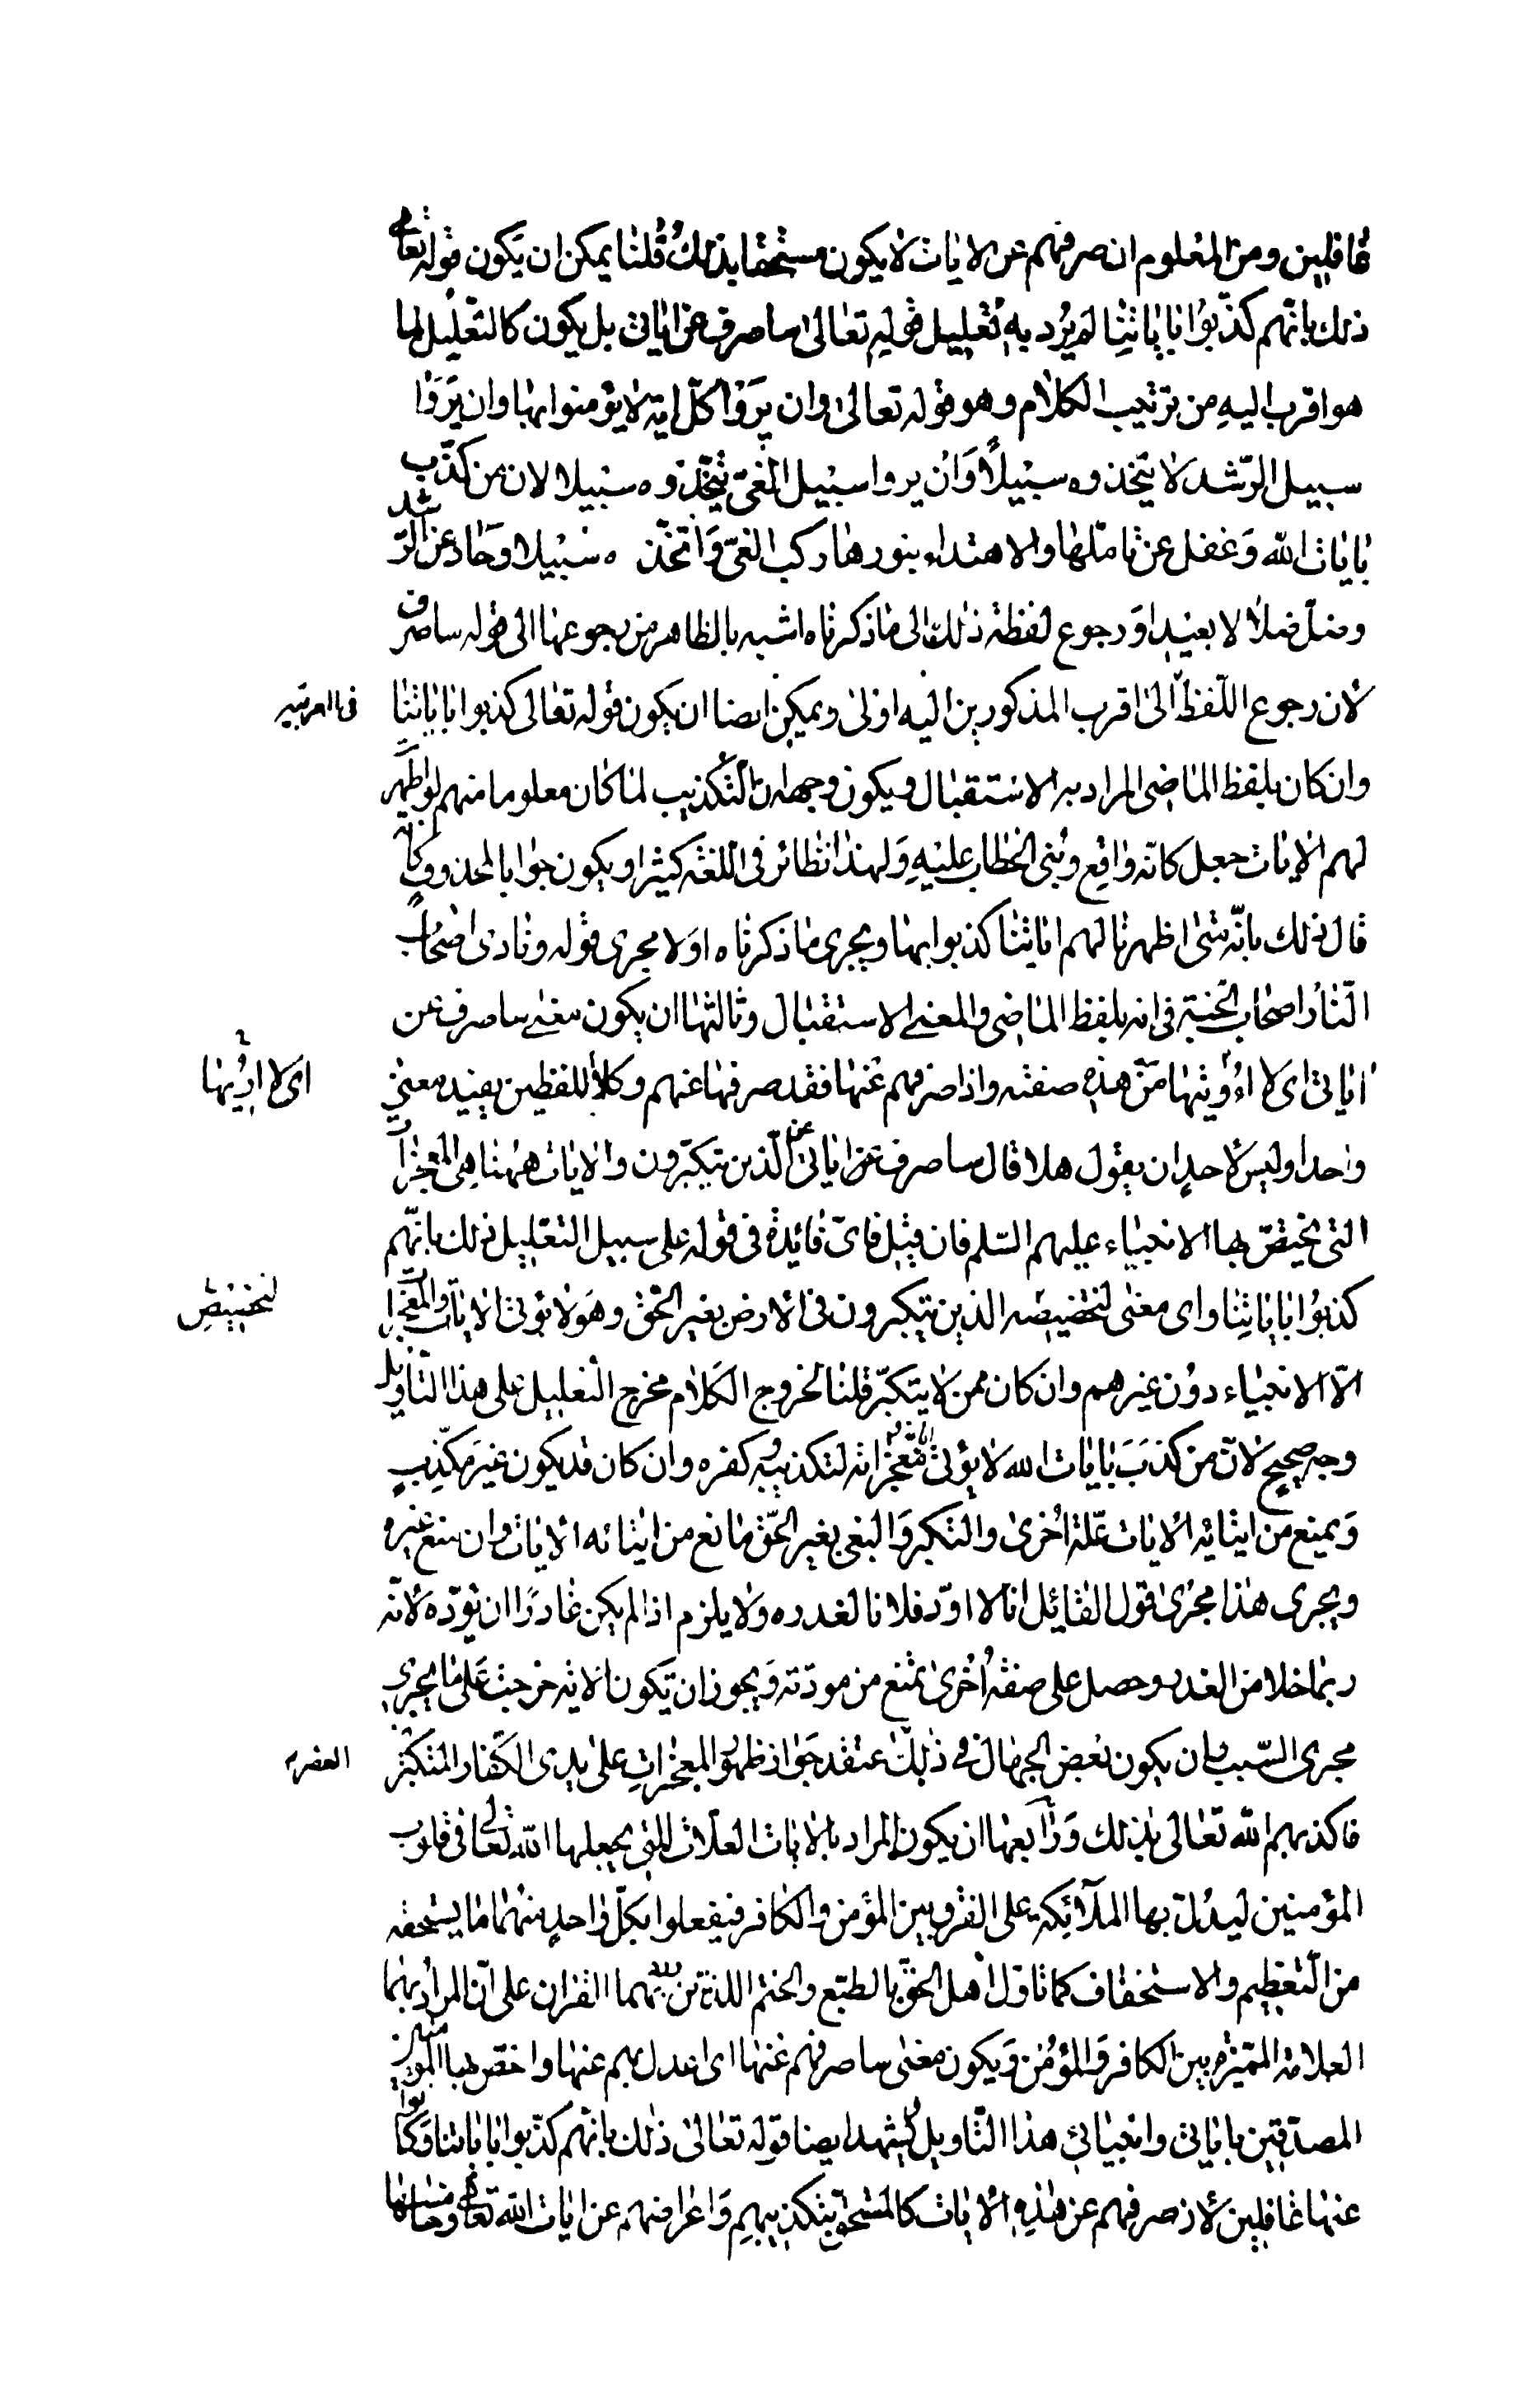 غافلين ومن المعلوم ان صرفهم عن الايات لا يكون مستحقا بذلك قلنا يمكن ان يكون قوله تعالى
ذلك بانّهم كذّبوا باياتنا لم يُرد به تعليل قوله تعالى ساصرف عن اياتي بل يكون كالتعليل لما
هو اقرب اليه من ترتيب الكلام وهو قوله تعالى وان يروا كلّ اية لا يؤمنوا بها وان يروا
سبيل الرّشد لا يتّخذوه سبيلًا وان يروا سبيل الغيّ يتّخذوه سبيلا لان من كذّب
بايات الله وغفل عن تامّلها والاهتداء بنورها ركب الغيّ واتخذه سبيلا وحاد عن الرّشد
وضلّ ضلالا بعيدا ورجوع لفظة ذلك الى ما ذكرناه اشبه بالظاهر من رجوعها الى قوله ساصرف
لان رجوع اللّفظ الى اقرب المذكورين اليه اولى ويمكن ايضا ان يكون قوله تعالى كذبوا باياتنا
وان كان بلفظ الماضي المراد به الاستقبال ويكون وجهه ان التكذيب لما كان معلوما منهم لو اظهر
لهم الايات جعل كانّه واقع وبُني الخطاب عليه ولهذا نظائر في اللغة كثيرا ويكون جوابا لمحذوف كانه
قال ذلك بانّه متى اظهرنا لهم اياتنا كذبوا بها ويجري ما ذكرناه اولا مجرى قوله ونادى اصحاب
النّار اصحاب الجنّة في انه بلفظ الماضي والمعنى الاستقبال وثالثها ان يكون معنى ساصرف عن
اياتي اي لا اءُوتيها من هذه صفته واذا صرفهم عنها فقد صرفها عنهم وكلا اللفظين يفيد معنى
اي لا اوتيها
واحدا وليس لاحدٍ ان يقول هلا قال ساصرف عن اياتي عن الّذين يتكبّرون والايات ههنا هي المعجزات
التي يختصّ بها الانبياء عليهم السّلم فان قيل فايّ فائدة في قوله على سبيل التعليل ذلك بانّهم
كذبوا باياتنا واي معنى لتخصيصه الذين يتكبرون في الارض بغير الحق وهو لا يؤتي الايات والمعجزات
لتخصيص
الّا الانبياء دون غيرهم وان كان ممن لا يتكبّر قلنا لخروج الكلام مخرج التعليل على هذا التاويل
وجه صحيح لانّ من كذب بايات الله لا يؤتى معجزاته لتكذيبه وكفره وان كان قد يكون غير مكذّب
ويمنع من ايتائه الايات علّة اخرى والتكبر والبغي بغير الحق مانع من ايتائه الايات وان منع غيره
ويجري هذا مجرى قول القائل انا لا اودّ فلانا لغدره ولا يلزم اذا لم يكن غادرًا ان يودّه لانّه
ربما خلا من الغدر وحصل على صفة اُخرى تمنع من مودّته ويجوز ان تكون الاية خرجت على ما يجري
مجرى السّبب وان يكون بعض الجهال في ذلك اعتقد جواز ظهور المعجزات على يدي الكفار المتكبر
فاكذبهم الله تعالى بذلك ورابعها ان يكون المراد بالايات العلامات التي يجعلها الله تعالى في قلوب
المؤمنين ليدلّ بها الملآئكة على الفرق بين المؤمن والكافر فيفعلوا بكلّ واحد منهما ما يستحقه
من التعظيم والاستخفاف كما تاوّل اهل الحق الطبع والختم اللذين بهما القران على انّ المراد بهما
العلامة المميّزة بين الكافر والمؤمن ويكون معنى ساصرفهم عنها اي اعدل بهم عنها واخصّ بها المؤمنين
المصدّقين باياتي وانبيائي هذا التاويل يشهد ايضا قوله تعالى ذلك بانهم كذّبوا باياتنا وكانوا
عنها غافلين لان صرفهم عن هذه الايات كالمستحق بتكذيبهم واعراضهم عن ايات الله تعالى